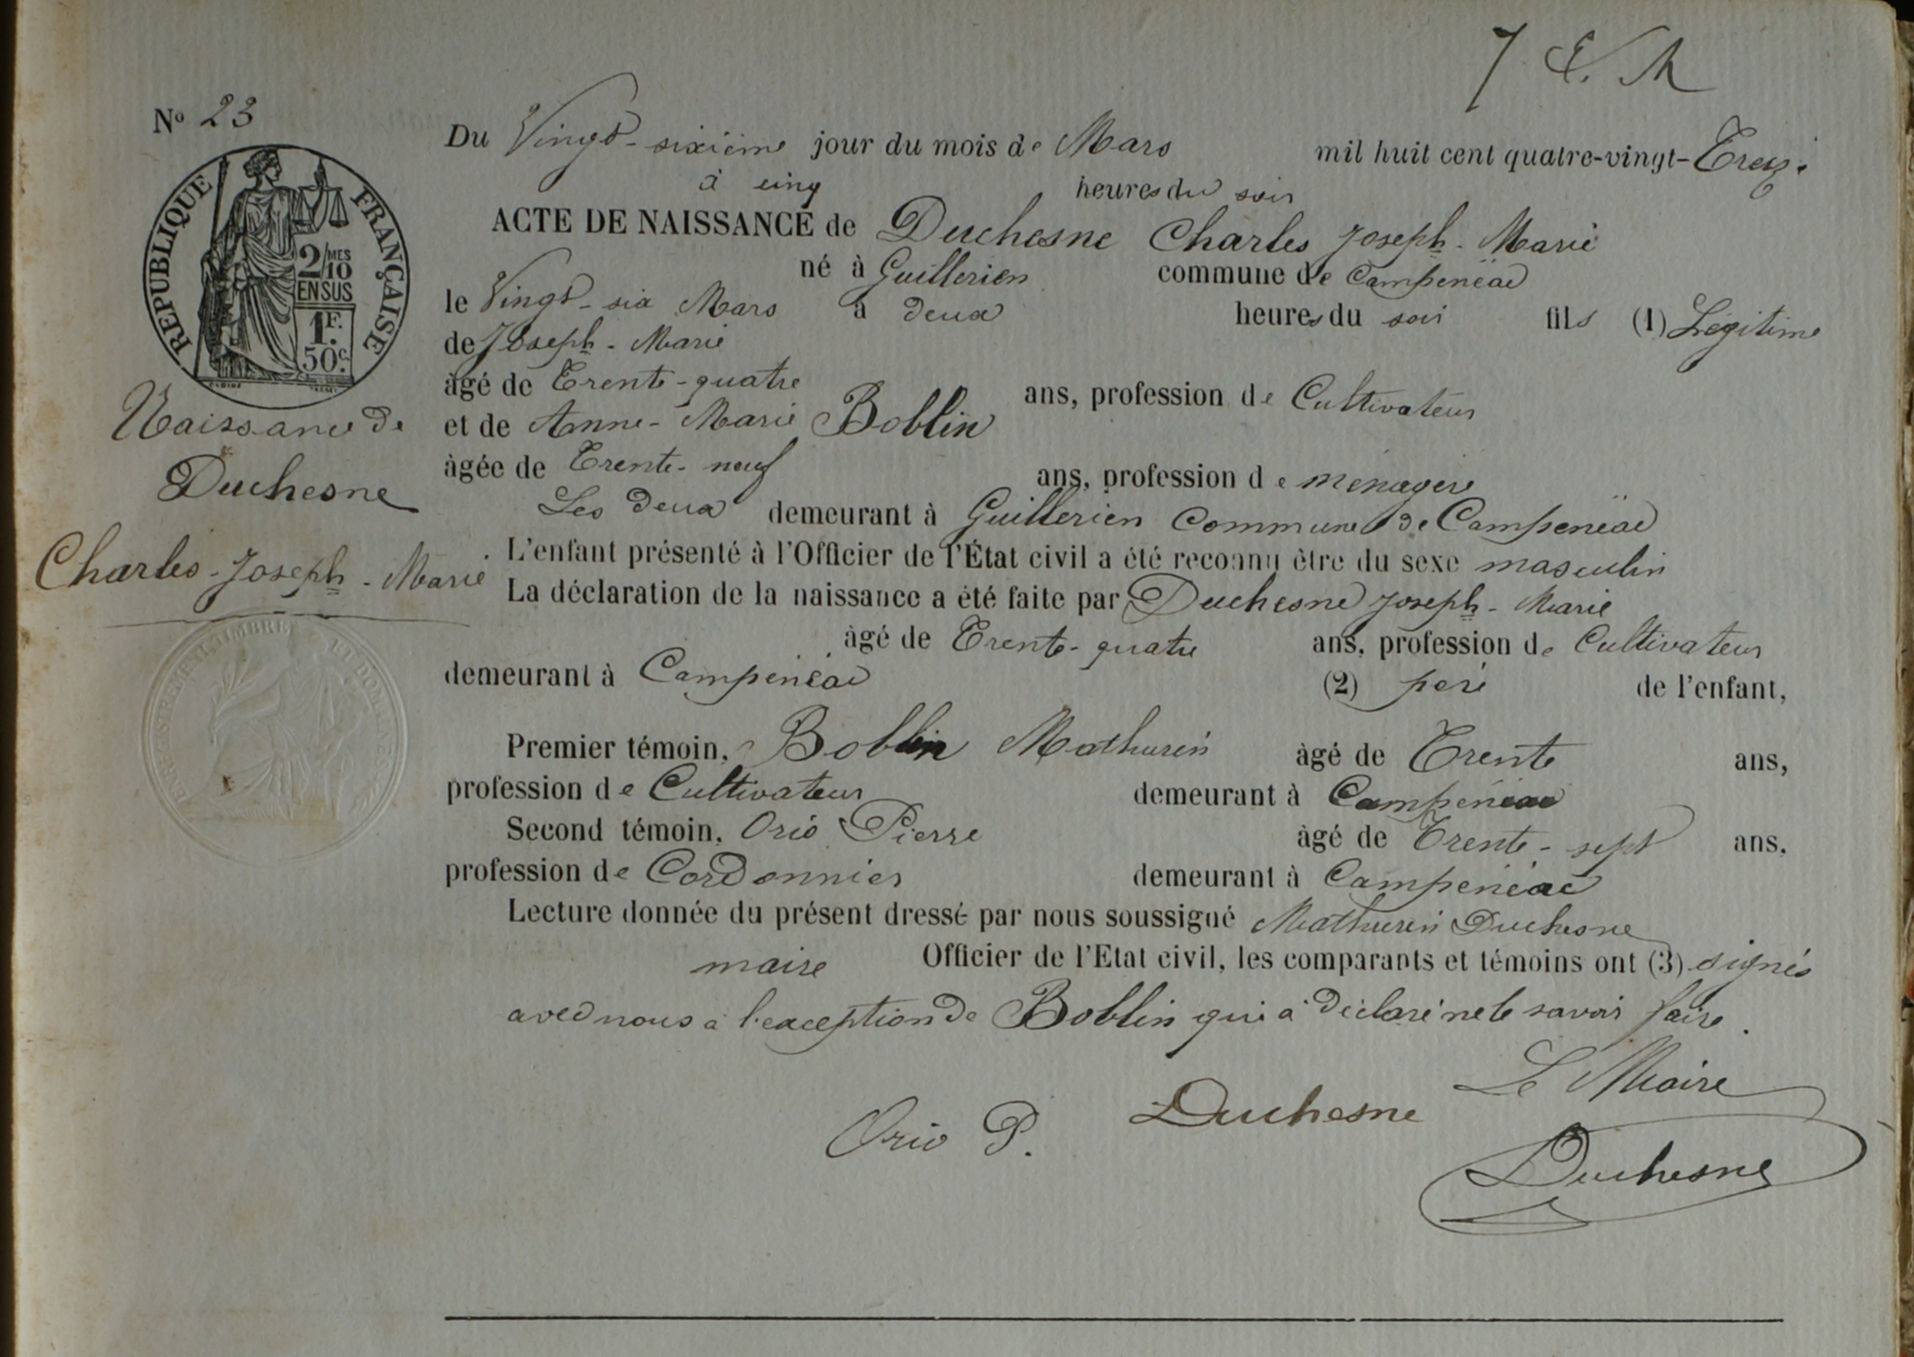 7 E. M
Nº 23
RÉPUBLIQUE FRANÇAISE
2/MES
10
EN SUS
1F.
50c.
Naissance de
Duchesne
Charles-Joseph-Marie
Du Vingt-sixième jour du mois de Mars mil huit cent quatre-vingt-Treize
à cinq heures du soir
ACTE DE NAISSANCE de Duchesne Charles Joseph-Marie
né à Guillerien commune de Campénéac
le Vingt-six Mars à deux heures du soir fils (1) Légitime
de Joseph-Marie
âgé de Trente-quatre ans, profession de Cultivateur
et de Anne-Marie Boblin
âgée de Trente-neuf ans, profession de ménagère
Les deux demeurant à Guillerien Commune de Campénéac
L'enfant présenté à l'Officier de l'État civil a été reconnu être du sexe masculin
La déclaration de la naissance a été faite par Duchesne Joseph-Marie
âgé de Trente-quatre ans, profession de Cultivateur
demeurant à Campénéac (2) père de l'enfant,
Premier témoin, Boblin Mathurin âgé de Trente ans,
profession de Cultivateur demeurant à Campénéac
Second témoin, Orio Pierre âgé de Trente-sept ans,
profession de Cordonnier demeurant à Campénéac
Lecture donnée du présent dressé par nous soussigné Mathurin Duchesne
maire Officier de l'Etat civil, les comparants et témoins ont (3) signés
avec nous à l'exception de Boblin qui a déclaré ne le savoir faire.
Le Maire
Orio P. Duchesne
Duchesne